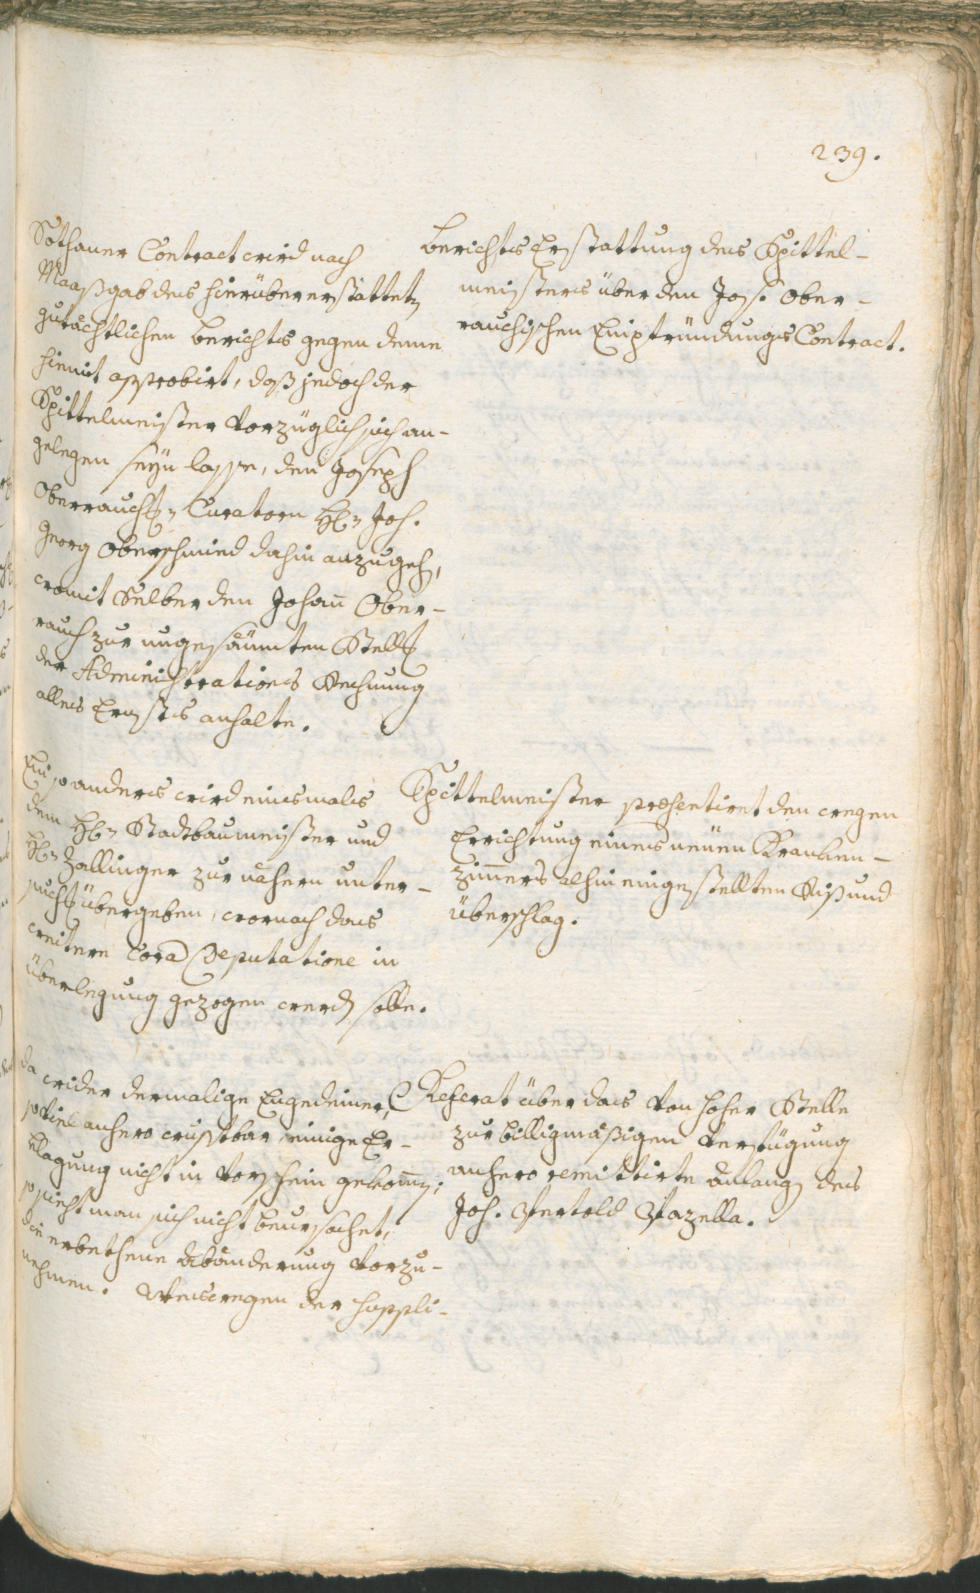 239.
Sothaner Contract wird nach
Maaßgab des hierüber erstatteten
gutächtlichen Berichts gegen deme
hiemit approbirt, daß jedoch der
Spittelmeister vorzüglich sich an-
gelegen seyn lasse, den Joseph
Oberrauchischen Curatorn Hrn Joh.
Georg Oberschmied dahin anzugehen,
womit Selber den Johann Ober-
rauch zur ungesäumten Stellung
der Administrations Rechnung
alles Ernstes anhalte.
Berichts Erstattung des Spittel-
meisters über den Jos. Ober-
rauchischen Einpfründungs Contract.
Ein so anders wird einsmals
dem Hrn Stadtbaumeister und
Hrn Zallinger zur nähern unter-
suchung übergeben, wornach das
weitere Cora Deputatione in
überlegung gezogen werden solle.
Spittelmeister præsentirt den wegen
Errichtung eines neuen Kranken-
zimmers alhin eingestellten Riß und
überschlag.
Da wider dermalige Eugediener,
soviel anhero wissbar, einige Er-
klagung nicht in vorschein gekommen;
so sieht man sich nicht beursachet,
die erbethene Abänderung vorzu-
nehmen. Weswegen der suppli-
Referat über das von hoher Stelle
zur billigmäßigen Verfügung
anhero remittirte Anlangen des
Joh. Bertold Pazella.